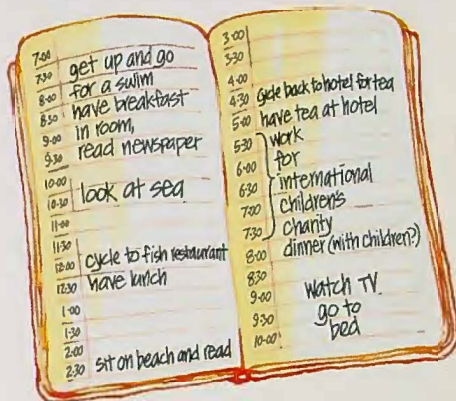 7:00
7:30 get up and go
8:00 for a swim
8:30 have breakfast
9:00 in room,
9:30 read newspaper
10:00
10:30 look at sea
11:00
11:30
12:00 cycle to fish restaurant
12:30 have lunch
1:00
1:30
2:00
2:30 sit on beach and read
3:00
3:30
4:00
4:30 cycle back to hotel for tea
5:00 have tea at hotel
5:30 work
6:00 for
6:30 international
7:00 children's
7:30 charity
8:00 dinner (with children?)
8:30
9:00 watch TV
9:30 go to
10:00 bed